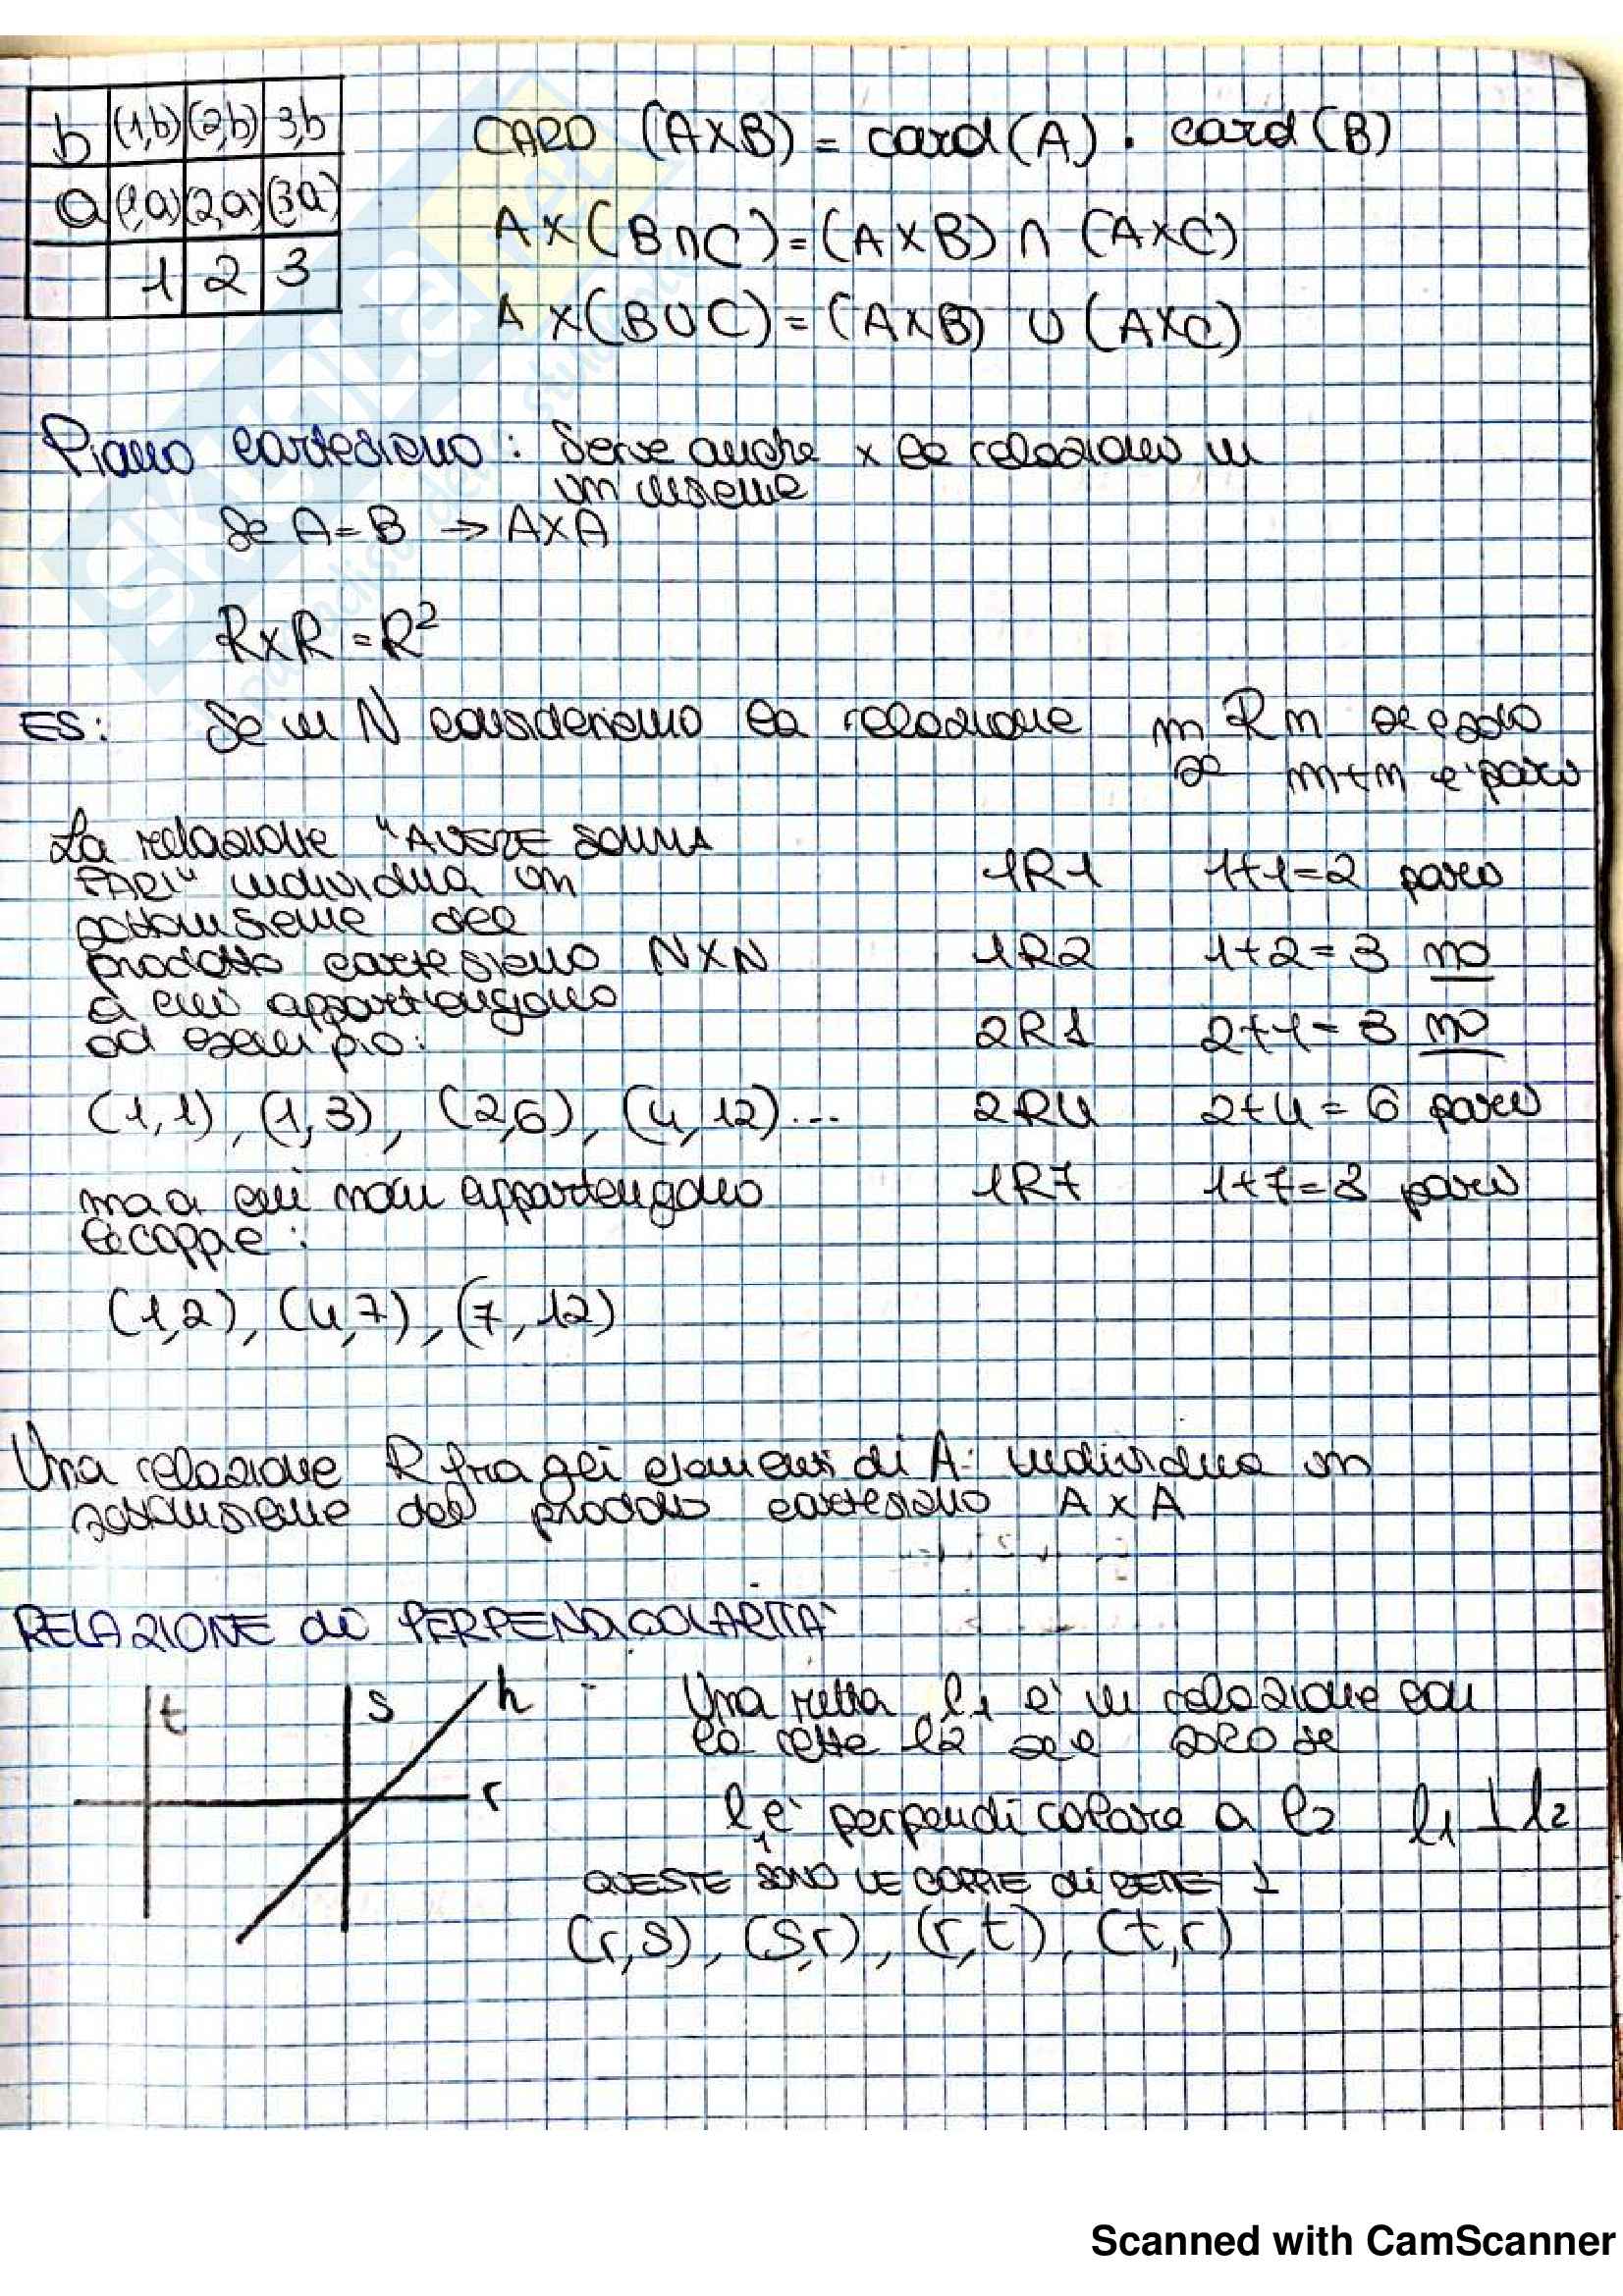 b (1,b) (2,b) 3,b
a (1,a) (2,a) (3a)
1 2 3
CARD (A×B) = card(A) . card(B)
A×(B∩C)=(A×B) ∩ (A×C)
A×(B∪C)=(A×B) ∪ (A×C)
Piano cartesiano: Serve anche x le relazioni in
un insieme
Se A=B → A×A
R×R =R²
ES: Se in N consideriamo la relazione m R n se e solo
se m+n e' pari
La relazione "AVERE SOMMA
PARI" individua un
sottoinsieme del
prodotto cartesiano N×N
a cui appartengono
ad esempio:
(1,1), (1,3), (2,6), (4,12)...
ma a cui non appartengono
le coppie:
(1,2), (4,7), (7,12)
1R1 1+1=2 pari
1R2 1+2=3 no
2R1 2+1=3 no
2R4 2+4=6 pari
1R7 1+7=8 pari
Una relazione R fra gli elementi di A: individua un
sottoinsieme del prodotto cartesiano A×A
RELAZIONE di PERPENDICOLARITA'
t s h
r
Una retta l1 e' in relazione con
la retta l2 se e solo se
l1 e' perpendicolare a l2 l1 ⊥ l2
QUESTE SONO LE COPPIE di RETTE ⊥
(r,s), (s,r), (r,t), (t,r)
Skuola.net
paradiso dello studente
Scanned with CamScanner